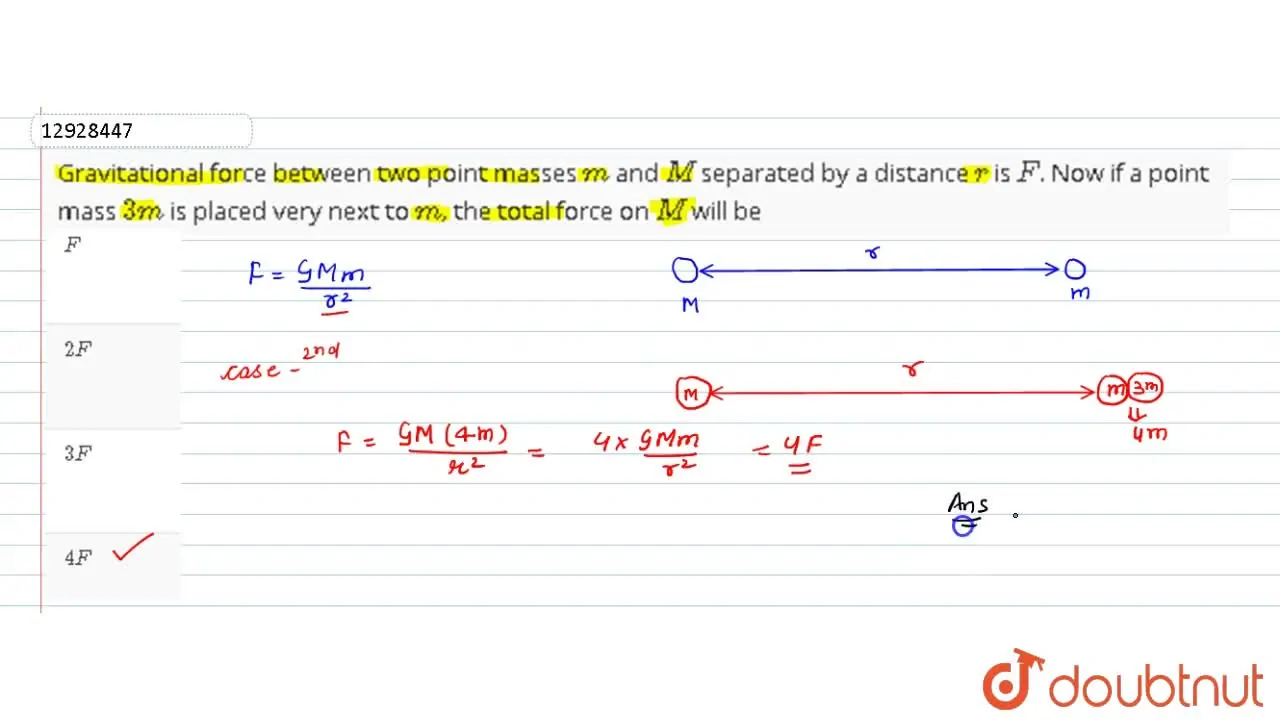 12928447
Gravitational force between two point masses m and M separated by a distance r is F. Now if a point
mass 3m is placed very next to m, the total force on M will be
F
F = GMm / r²
r
M
m
2F
case - 2nd
r
M
m 3m
4m
3F
F = GM(4m) / r² = 4 × GMm / r² = 4F
Ans
4F
doubtnut